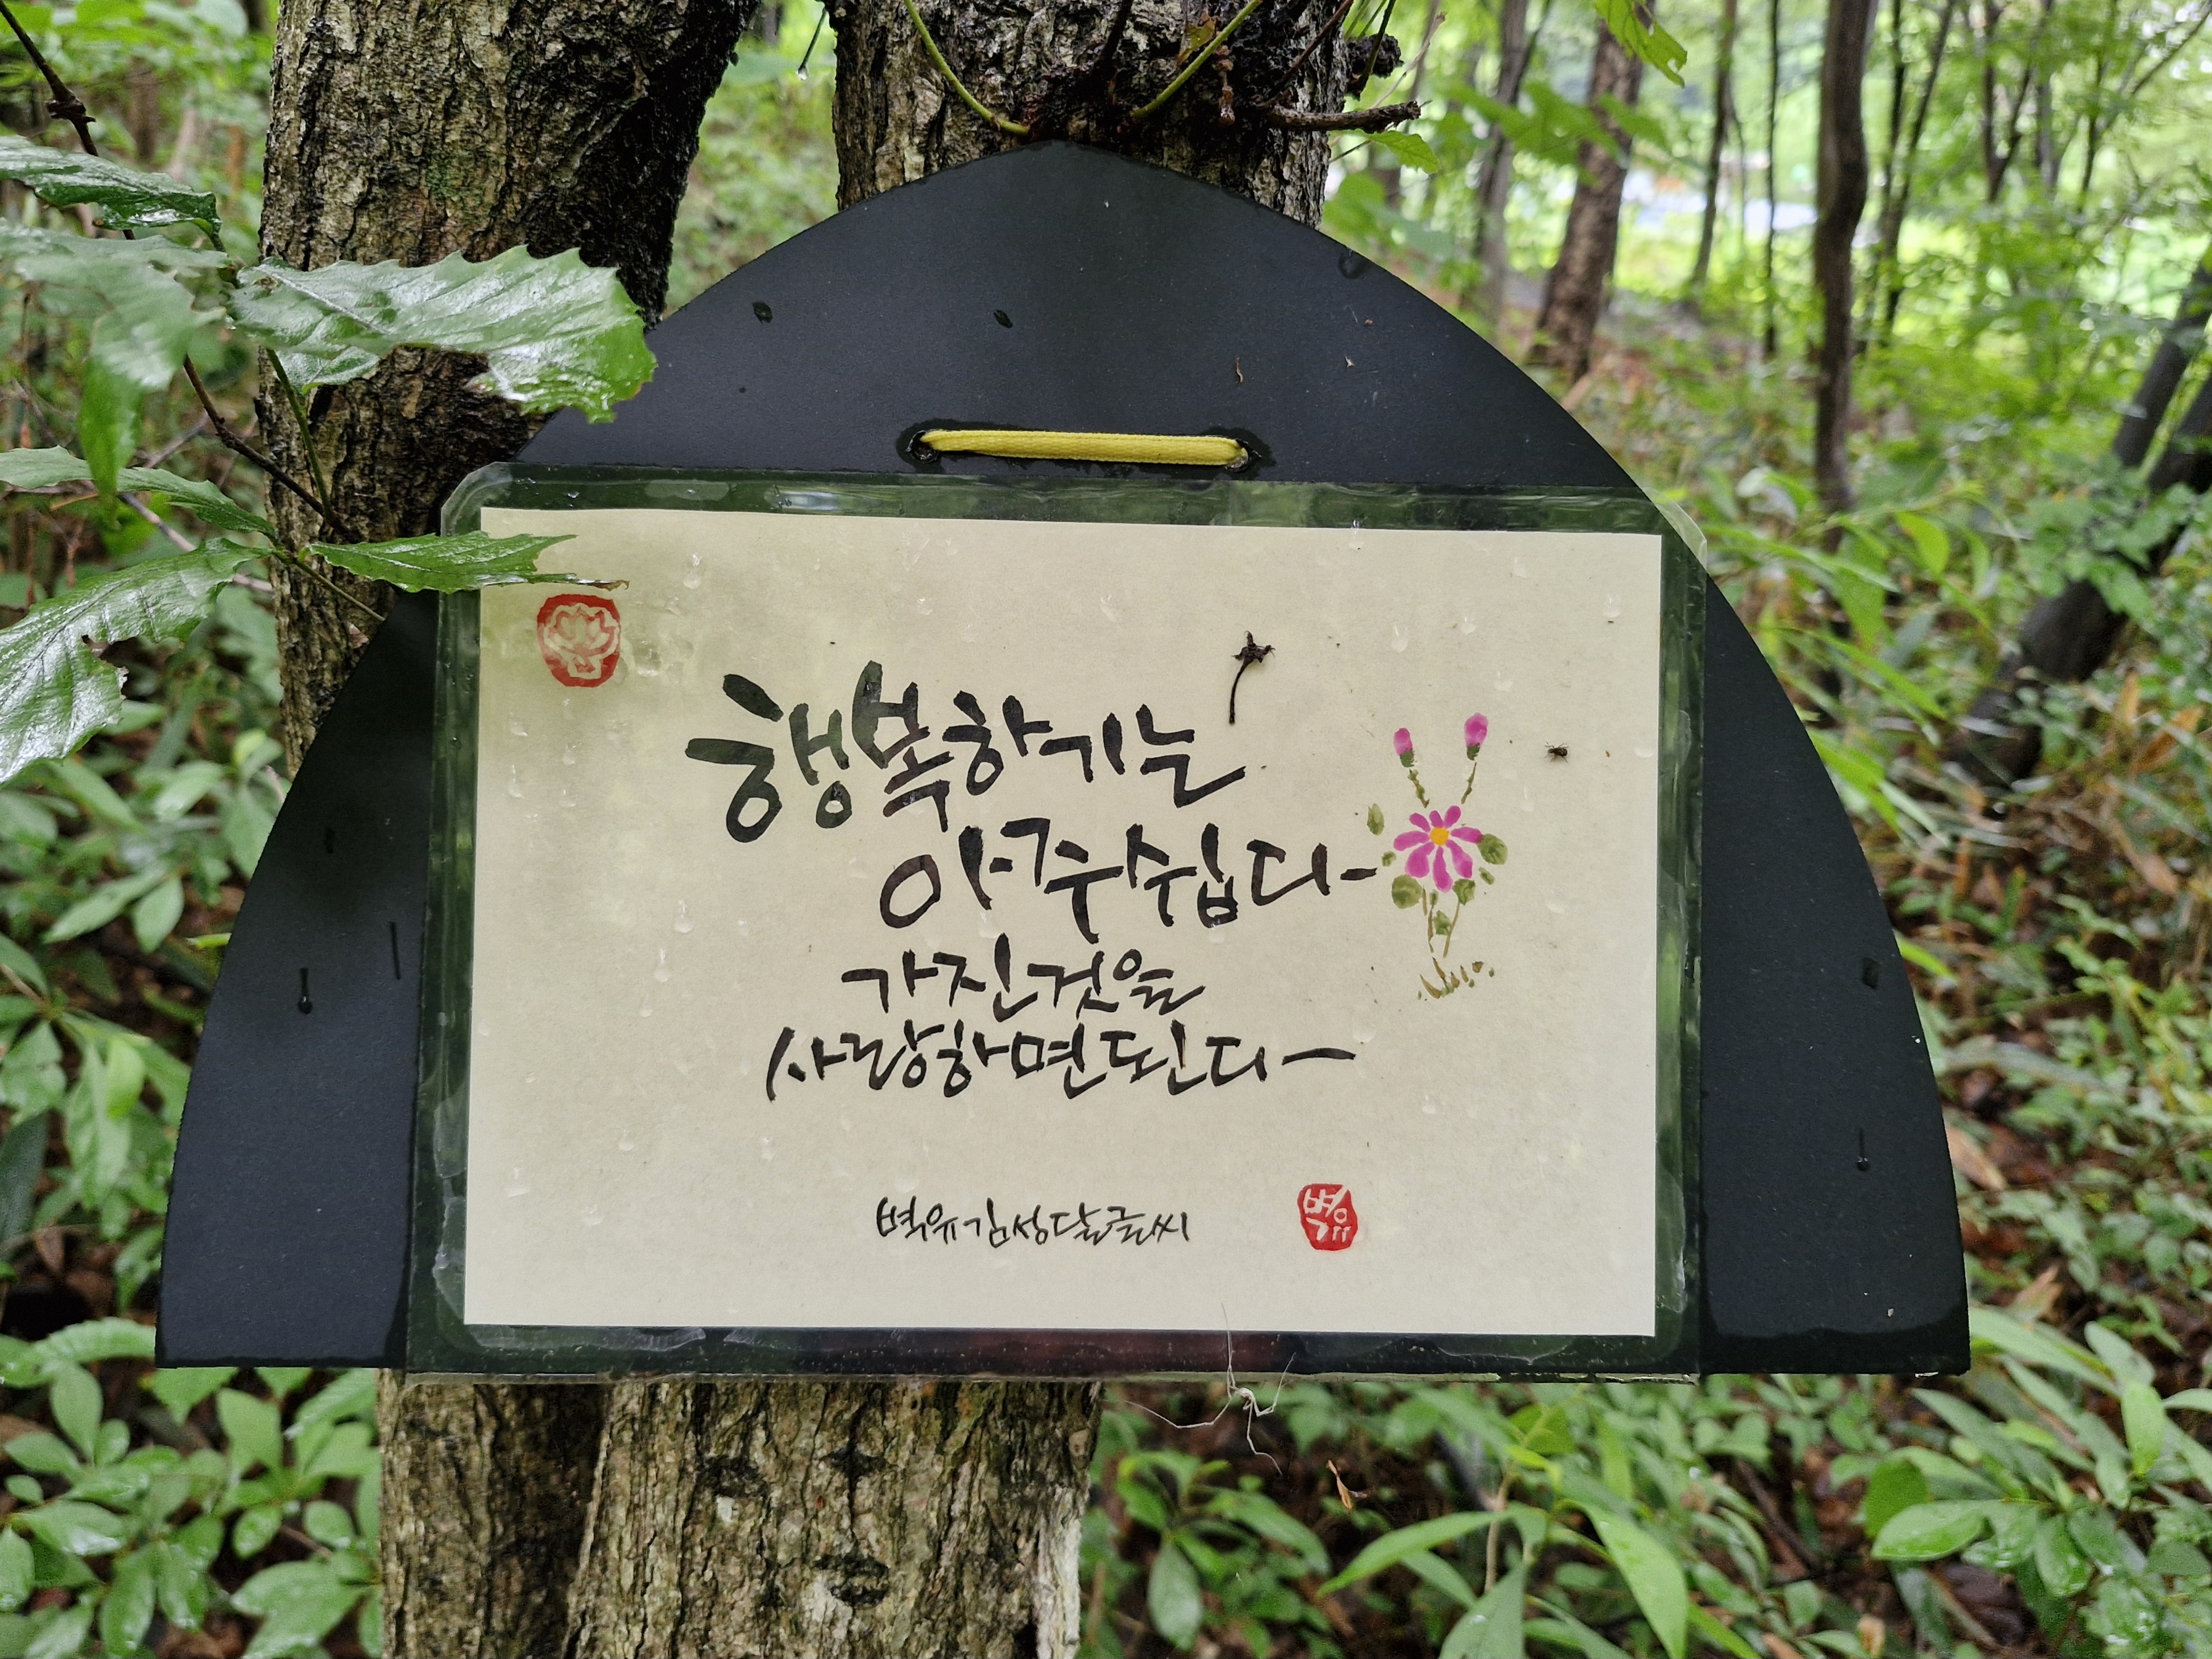 행복하기는
아주 쉽다-
가진것을
사랑하면 된다-
벽유 김상달 글씨
벽유